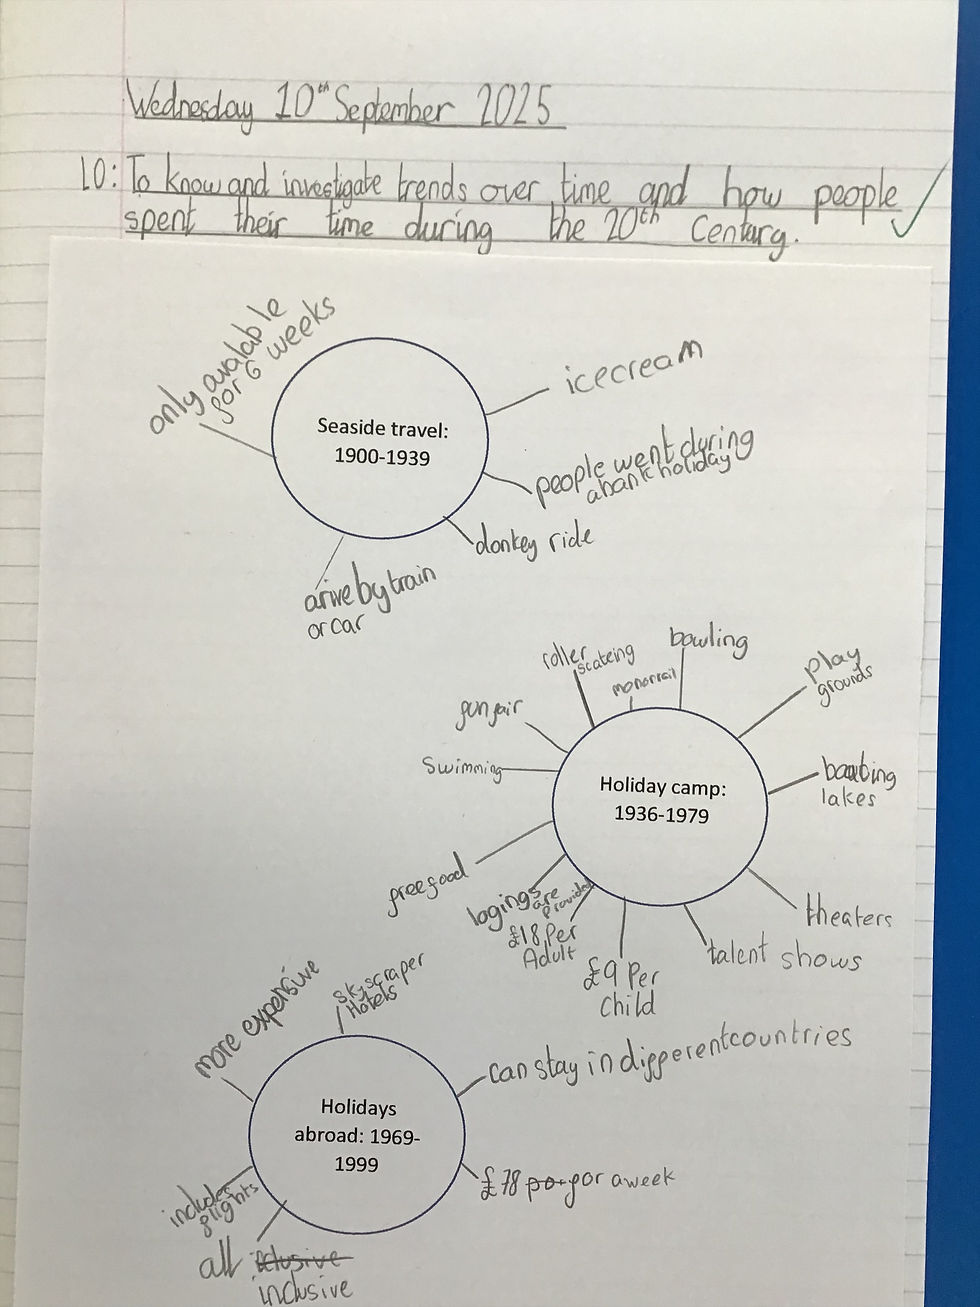 Wednesday 10th September 2025
LO: To know and investigate trends over time and how people
spent their time during the 20th Century.
only avalable
for 6 weeks
icecream
Seaside travel:
1900-1939
people went during
a bank holiday
donkey ride
arive by train
or car
roller
scateing
monorail
bowling
play
grounds
funfair
Swimming
Holiday camp:
1936-1979
boating
lakes
free food
logings
are
provided
£18 Per
Adult
£9 Per
Child
talent shows
theaters
more expensive
Skyscraper
Hotels
can stay in different countries
Holidays
abroad: 1969-
1999
£78 for a week
includes
flights
all
inclusive